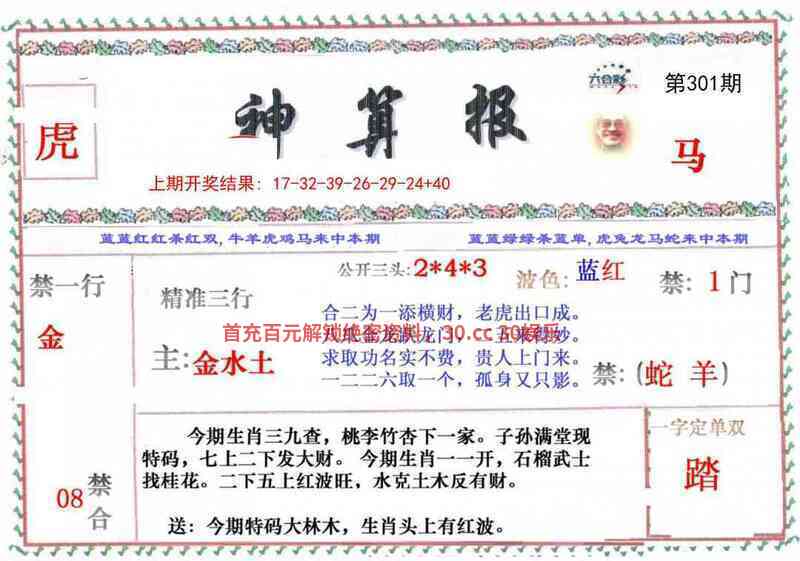 六合彩
第301期
虎
神算报
马
上期开奖结果：17-32-39-26-29-24+40
蓝蓝红红杀红双，牛羊虎鸡马来中本期
蓝蓝绿绿杀蓝单，虎兔龙马蛇来中本期
禁一行
金
精准三行
主：金水土
公开三头：2*4*3
波色：蓝红
禁：1门
合二为一添横财，老虎出口成。
首充百元解
30.cc
求取功名实不费，贵人上门来。
一二二六取一个，孤身又只影。
禁：（蛇 羊）
08
禁合
今期生肖三九查，桃李竹杏下一家。子孙满堂现
特码，七上二下发大财。 今期生肖一一开，石榴武士
找桂花。二下五上红波旺，水克土木反有财。
送：今期特码大林木，生肖头上有红波。
一字定单双
踏